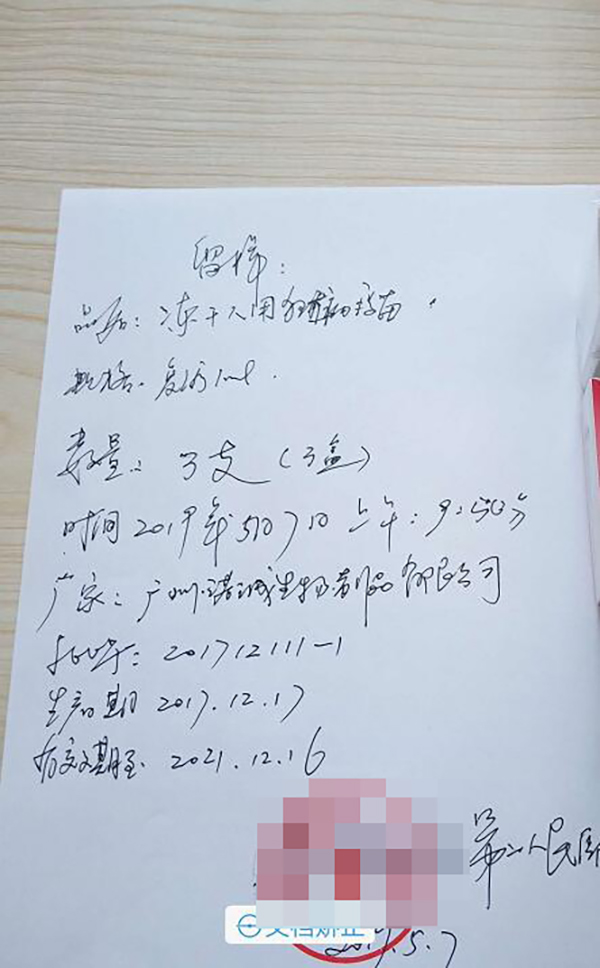 留样：
品名：冻干人用狂犬病疫苗
规格：复溶1ml.
数量：3支（3盒）
时间2019年5月7日上午：9:50分
厂家：广州诺诚生物制品有限公司
批号：201712111-1
生产日期 2017.12.17
有效期至 2021.12.16
第二人民医
文档矫正
5.7